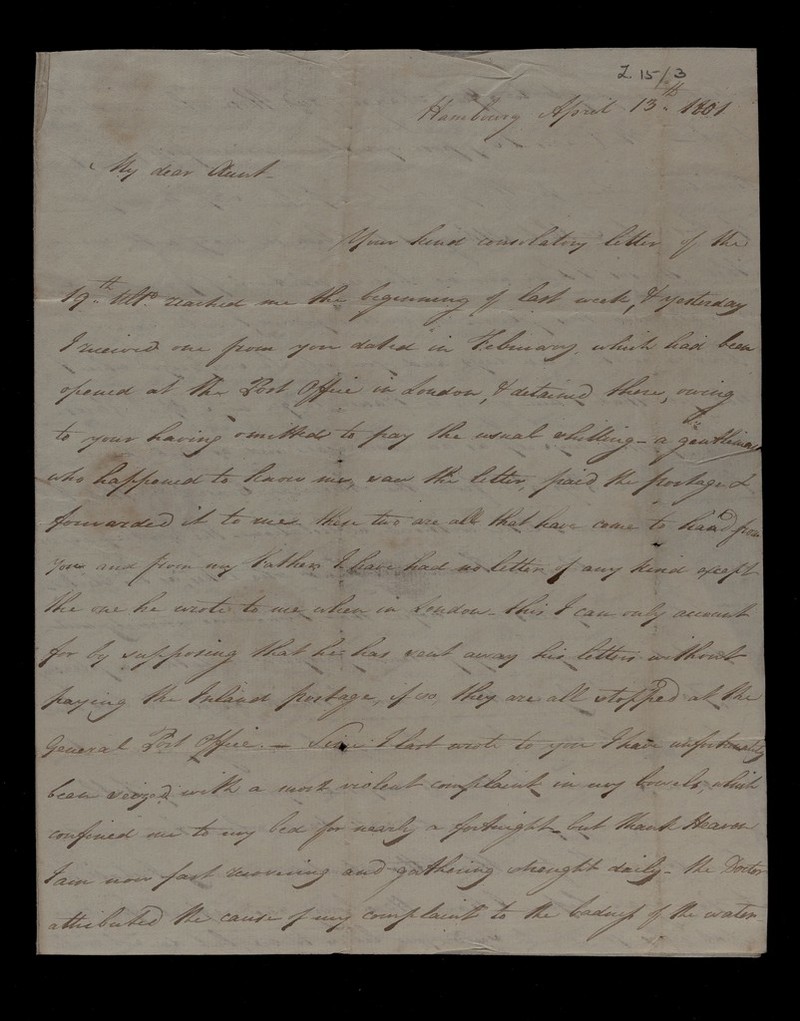 Z 15/3
Hambourg April 13th 1801
My dear Aunt-
Your kind consolatory letter of the
19th Ulto. reached me the beginning of last week, & yesterday
I received one from you dated in February, which had been
opened at the Post Office in London, & detained there, owing
to your having omitted to pay the usual shilling - a gentleman
who happened to know me, saw the letter, paid the postage &
forwarded it to me. these two are all that have come to hand from
you and from my Father I have had no letter of any kind except
the one he wrote to me when in London - this I can only account
for by supposing that he has sent away his letters without
paying the Inland postage, if so they are all stopped at the
General Post Office. - Since I last wrote to you I have unfortunately
been seized with a most violent complaint in my bowels which
confined me to my bed for nearly a fortnight - but thank Heaven
I am now fast recovering and gathering strenght daily - the Doctor
attributed the cause of my complaint to the badness of the water